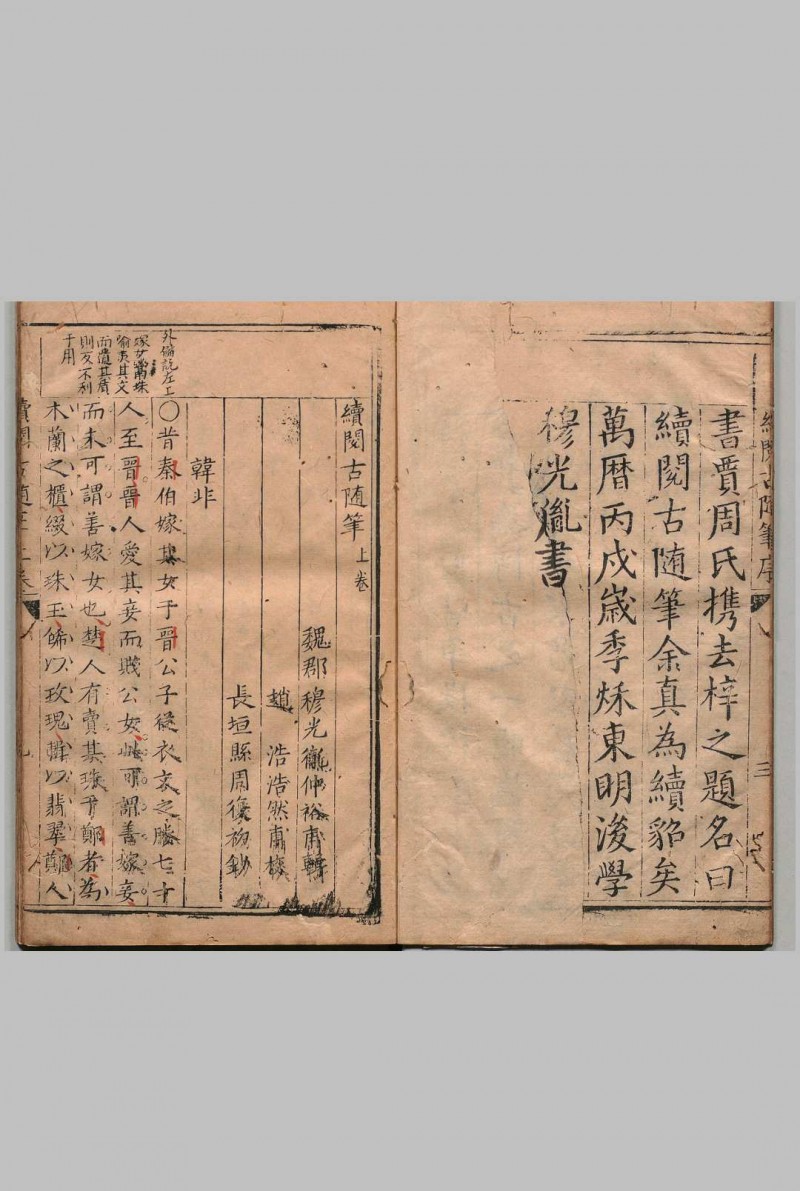 續閱古隨筆序
三
書賈周氏携去梓之題名曰
續閱古随筆余真為續貂矣
萬曆丙戍嵗季秌東明浚學
穆光胤書
續閱古随筆 上卷
魏郡穆光胤仲裕甫輯
趙 浩浩然甫校
長垣縣周復初鈔
韓非
外儲說左上
嫁女鬻珠
喻夷其文
而遺其質
則反不利
于用
〇昔秦伯嫁其女于晉公子從衣衣之媵七十
人至晉晉人愛其妾而賤公女此可謂善嫁妾
而未可謂善嫁女也楚人有賣其珠于鄭者為
木蘭之櫃綴以珠玉餙以玫瑰輯以翡翠鄭人